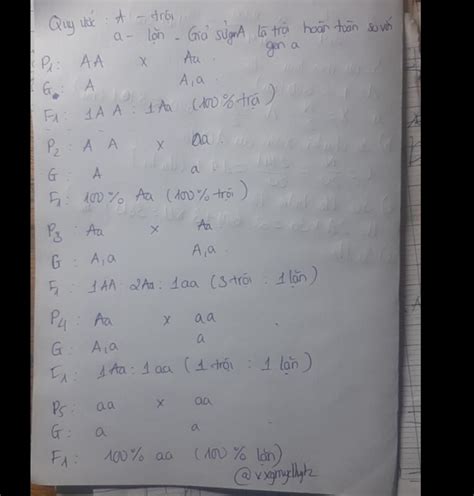 Quy ước : A - trội
a - lặn - Giả sử gen A là trội hoàn toàn so với
gen a
P1 : AA x Aa
G : A A,a
F1 : 1AA : 1Aa (100% trội)
P2 : AA x aa
G : A a
F1 : 100% Aa (100% trội)
P3 : Aa x Aa
G : A,a A,a
F1 : 1AA 2Aa : 1aa (3 trội : 1 lặn)
P4 : Aa x aa
G : A,a a
F1 : 1Aa : 1aa (1 trội : 1 lặn)
P5 : aa x aa
G : a a
F1 : 100% aa (100% lặn)